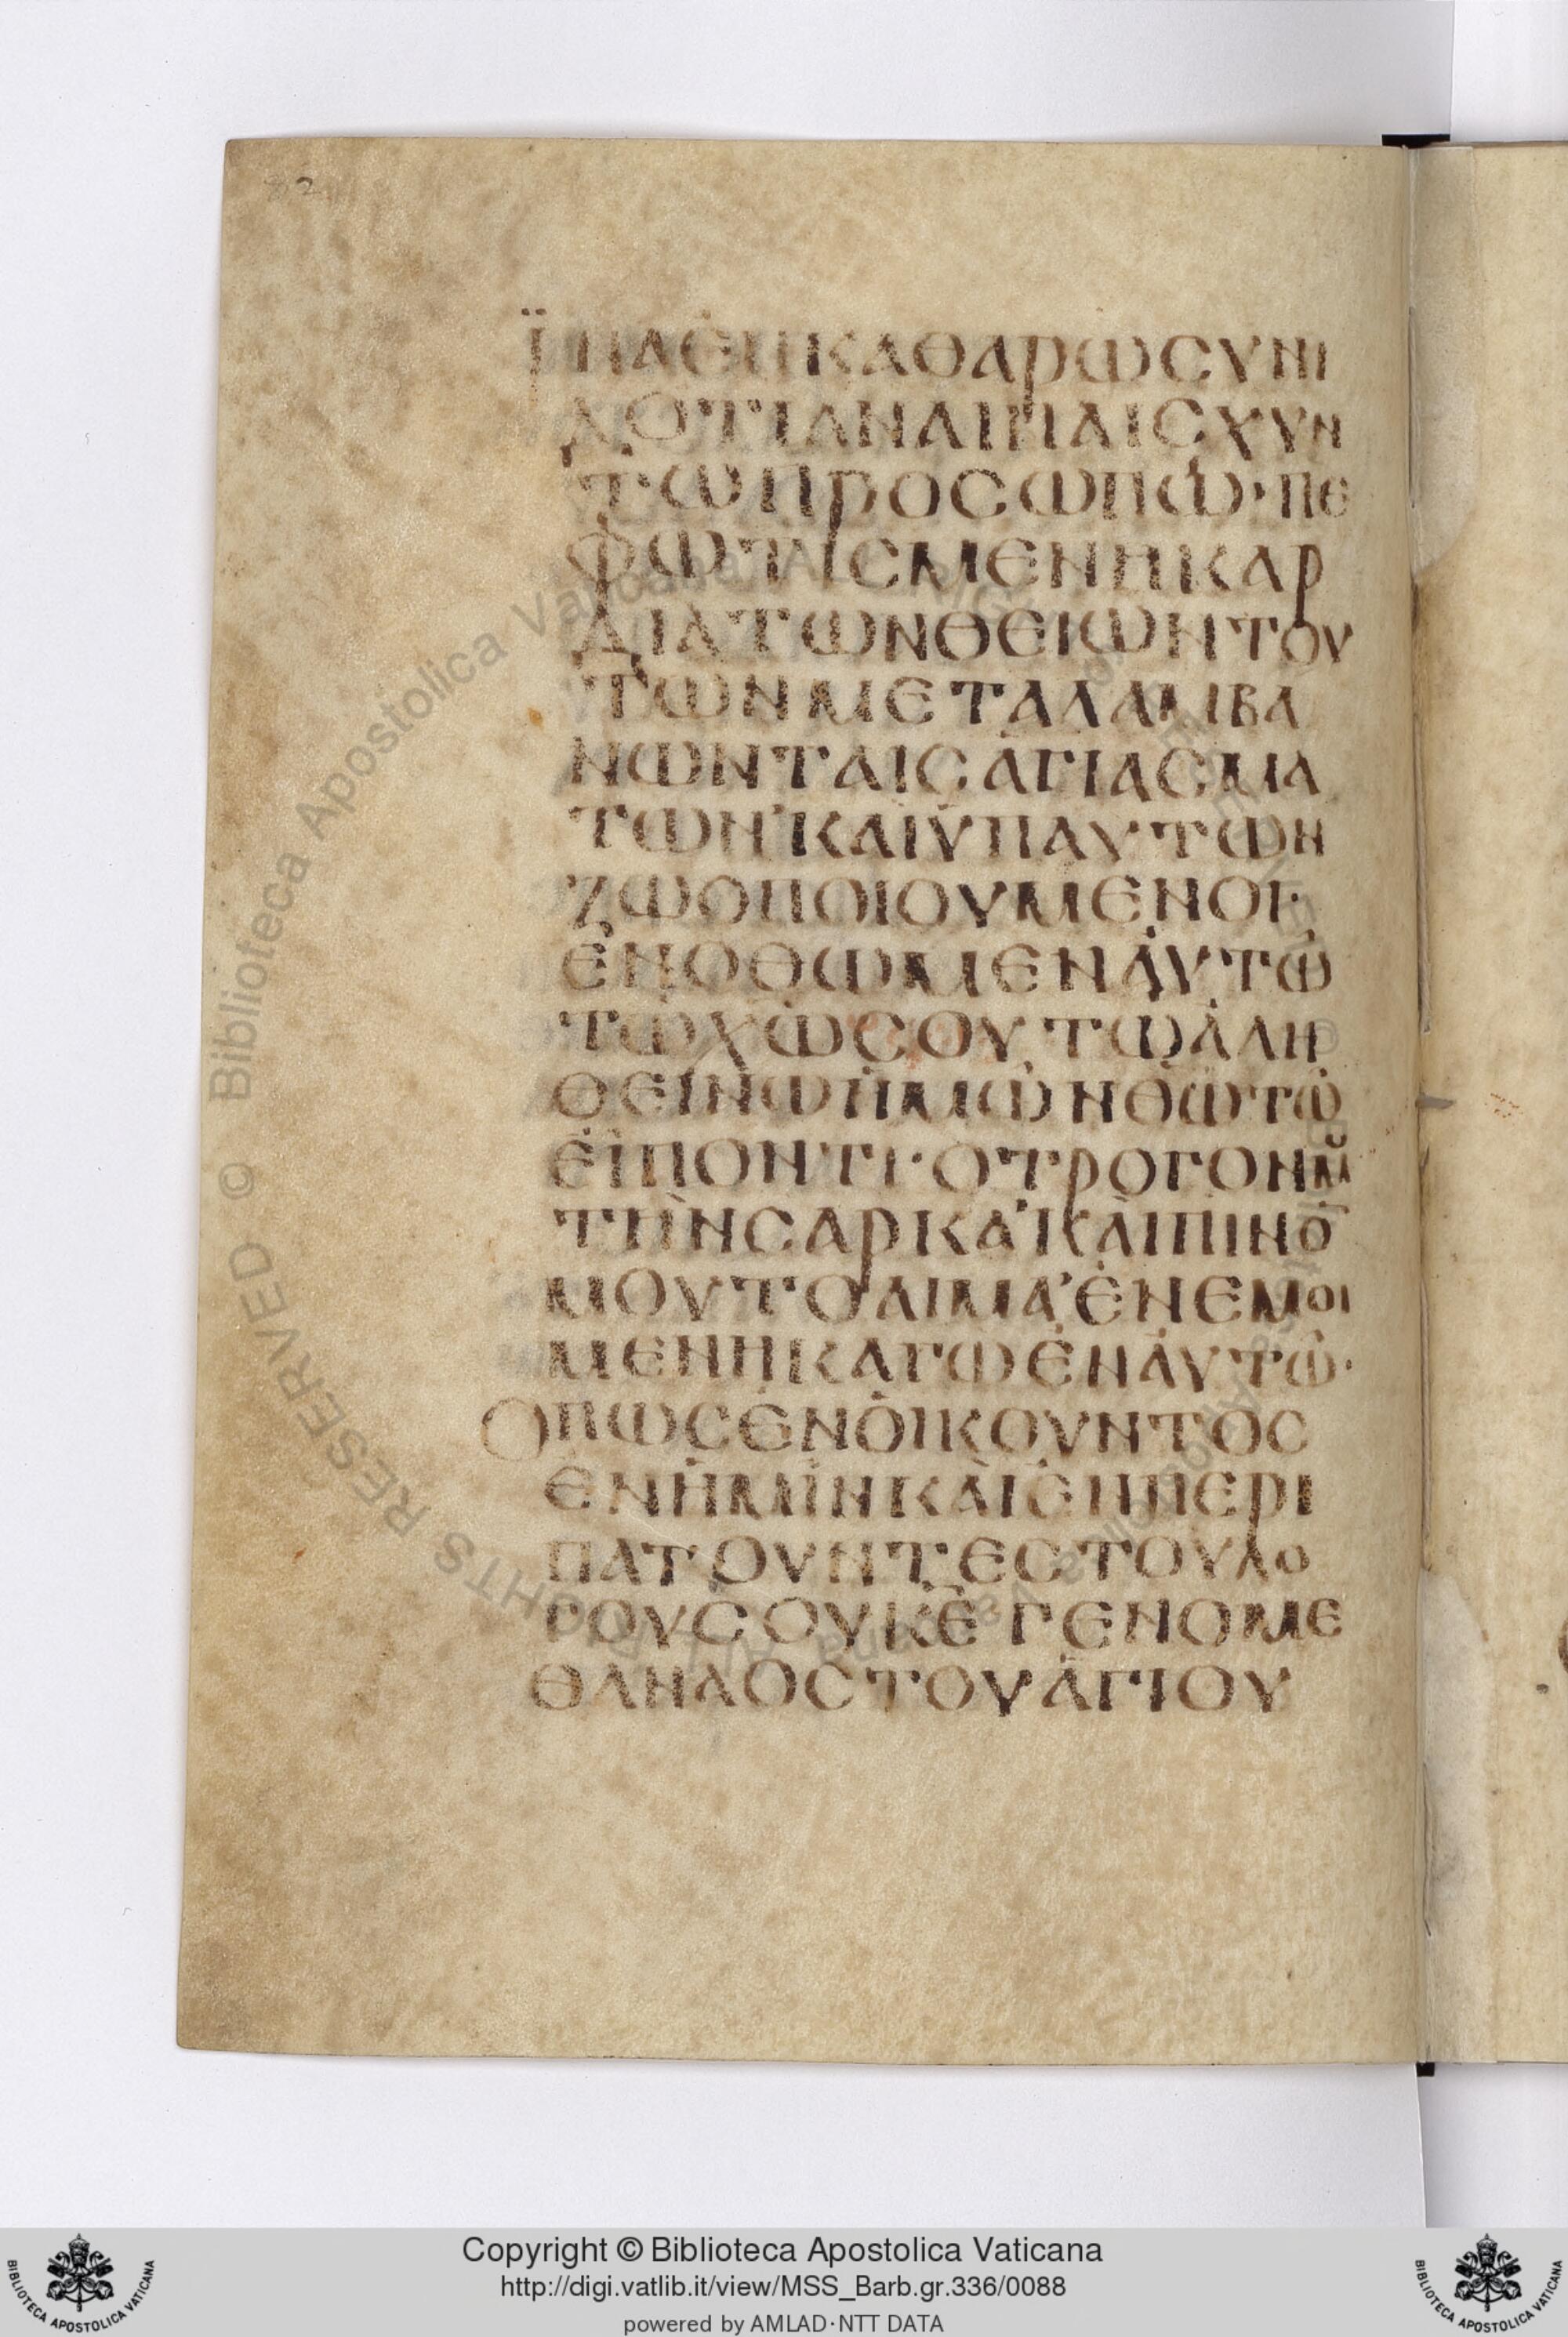 2
ΪΝΑΕΝΚΑΘΑΡΩСΥΝΙ
ΔΟΤΙΑΝΑΙΠΑΙСΧΥΝ
ΤΩΠΡΟСΩΠΩ·ΠΕ
ΦΩΤΙСΜΕΝΗΚΑΡ
ΔΙΑΤΩΝΘΕΙΩΝΤΟΥ
ΤΩΝΜΕΤΑΛΑΜΒΑ
ΝΩΝΤΑΙСΑΓΙΑСΜΑ
ΤΩΝ'ΚΑΙΫΠΑΥΤΩΝ
ΖΩΟΠΟΙΟΥΜΕΝΟΙ·
ΕΝΟΘΩΜΕΝΑΥΤΩ
ΤΩΧΩСΟΥΤΩΑΛΗ
ΘΕΙΝΩΗΜΩΝΘΩΤΩ
ΕΙΠΟΝΤΙ·ΟΤΡΟΓΟΝΜȢ
ΤΗΝСΑΡΚΑ'ΚΑΙΠΙΝΟ
ΜΟΥΤΟΑΙΜΑ'ΕΝΕΜΟΙ
ΜΕΝΗΚΑΓΩΕΝΑΥΤΩ·
ΟΠΩСΕΝΟΙΚΟΥΝΤΟС
ΕΝΗΜΙΝΚΑΙΕΝΠΕΡΙ
ΠΑΤΟΥΝΤΕСΤΟΥΛΟ
ΓΟΥСΟΥΚΕΓΕΝΟΜΕ
ΘΑΝΑΟСΤΟΥΑΓΙΟΥ
Copyright © Biblioteca Apostolica Vaticana
http://digi.vatlib.it/view/MSS_Barb.gr.336/0088
powered by AMLAD·NTT DATA
BIBLIOTECA APOSTOLICA VATICANA
BIBLIOTECA APOSTOLICA VATICANA